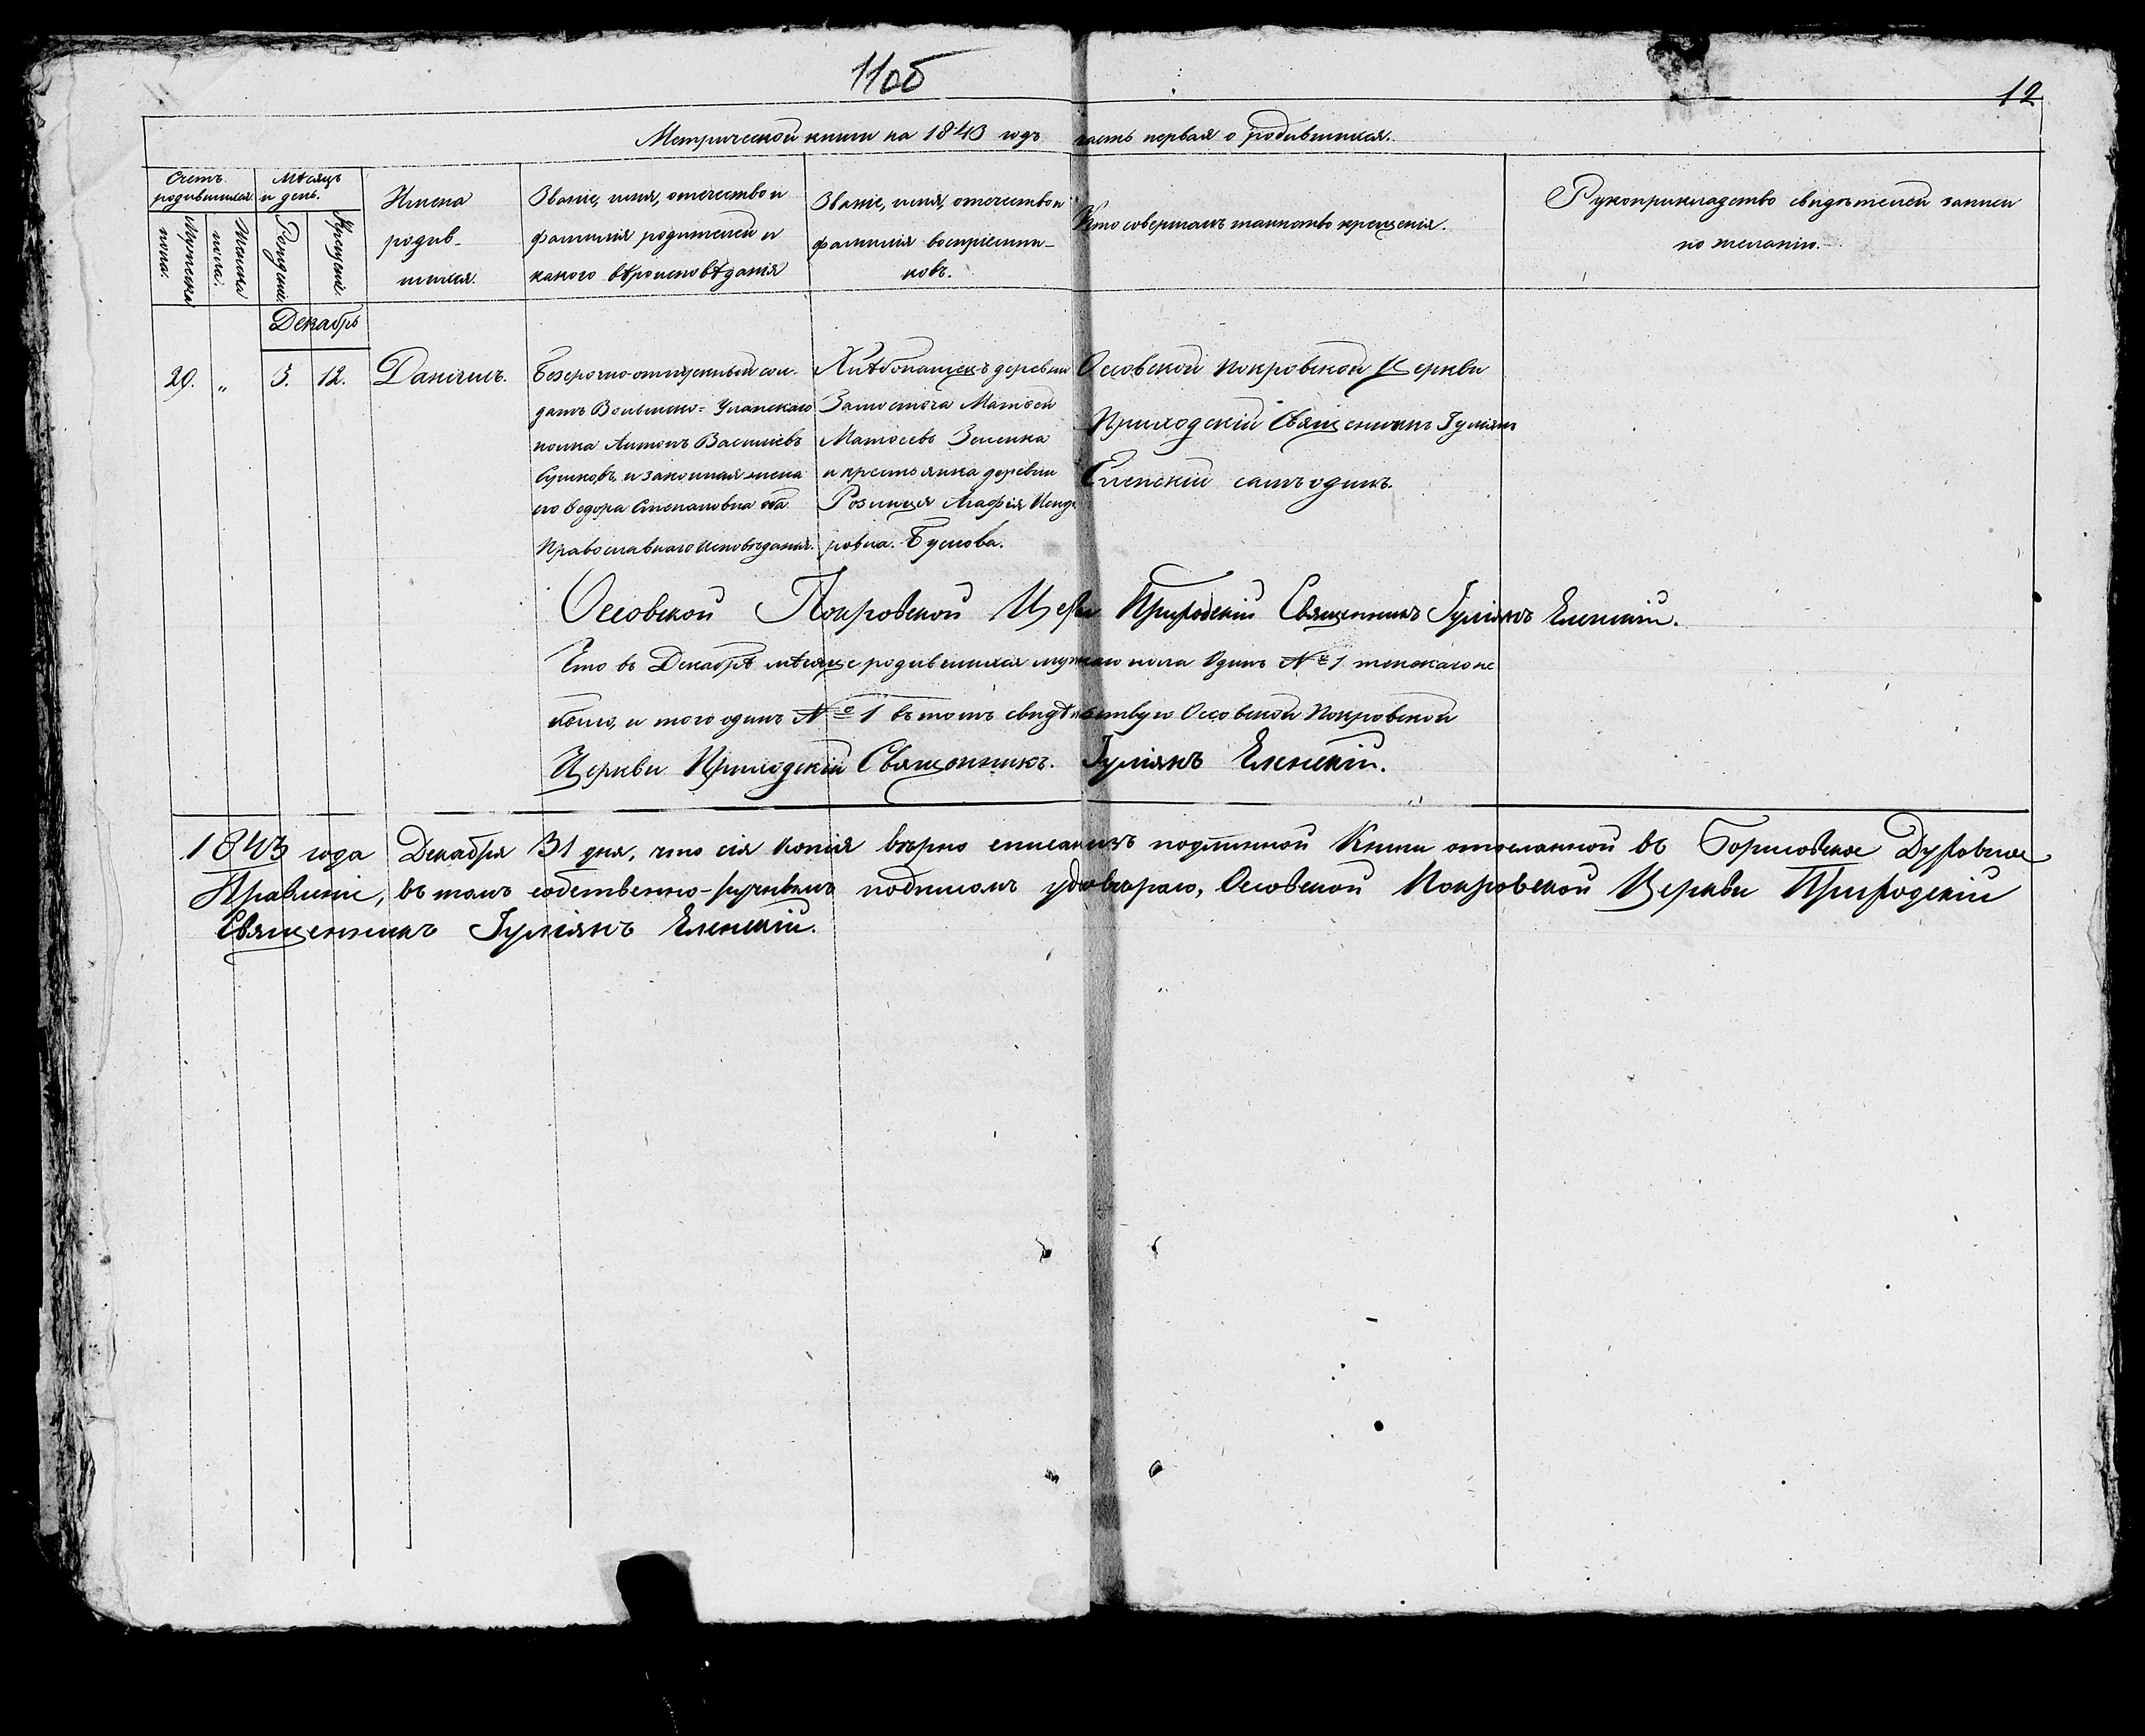 11об
12
Метрической книги на 1843 годъ часть первая о родившихся.
Счетъ родившихся.
Мужеска пола.
Женска пола.
Мѣсяцъ и день.
Рожденіе.
Крещеніе.
Имена
родив-
шихся.
Званіе, имя, отечество и
фамилія родителей и
какого вѣроисповѣданія
Званіе, имя, отечество и
фамилія воспріемни-
ковъ.
Кто совершалъ таинство крещенія.
Рукоприкладство свидѣтелей записи
по желанію.
Декабрь
20. „ 3. 12. Даніилъ.
Безсрочно-отпускный сол-
датъ Волынско-Уланскаго
полка Антонъ Васильевъ
Сушковъ, и законная жена
его Ѳедора Степановна оба
Православнаго исповѣданія.
Хлѣбопашецъ деревни
Замосточа Матвей
Матвеевъ Зеленка
и крестьянка деревни
Агафія
ровна.
Оссовской Покровской Церкви
Приходскій Священникъ Іуліянъ
Еленскій самъ одинъ.
Оссовской Покровской Церкви Приходскій Священникъ Іуліянъ Еленскій.
Что въ Декабрѣ мѣсяце родившихся мужскаго пола Одинъ № 1 женскаго не
было, и того одинъ № 1 въ томъ свидѣтельствую Оссовской Покровской
Церкви Приходскій Священникъ. Іуліянъ Еленскій.
1843 года Декабря 31 дня, что сія копія вѣрно списана изъ подлинной Книги отосланной въ Борисовское Духовное
Правленіе, въ томъ собственно-ручнымъ подписомъ удовѣряю, Оссовской Покровской Церкви Приходскій
Священникъ Іуліянъ Еленскій.